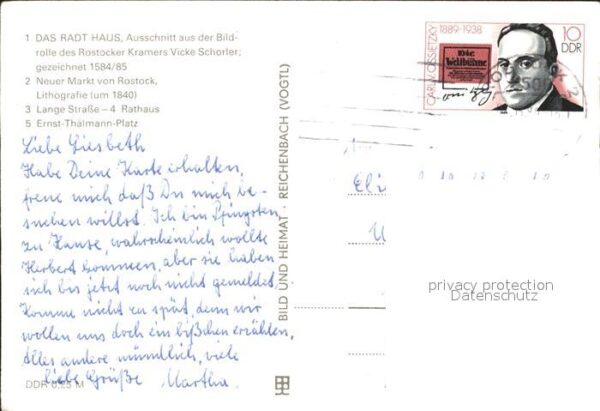 1 DAS RADT HAUS, Ausschnitt aus der Bild-
rolle des Rostocker Kramers Vicke Schorler;
gezeichnet 1584/85
2 Neuer Markt von Rostock,
Lithografie (um 1840)
3 Lange Straße – 4 Rathaus
5 Ernst-Thälmann-Platz
Liebe Liesbeth
Habe Deine Karte erhalten,
freue mich daß Du mich be-
suchen willst. Ich bin Pfingsten
zu Hause, wahrscheinlich wollte
Herbert kommen, aber sie haben
sich bis jetzt noch nicht gemeldet.
Komme nicht zu spät, denn wir
wollen uns doch ein bißchen erzählen,
Alles andere mündlich, viele
liebe Grüße Martha.
DDR 0,25 M
BILD UND HEIMAT · REICHENBACH (VOGTL)
CARL V. OSSIETZKY
1889-1938
10
DDR
Die
Weltbühne
Eli
privacy protection
Datenschutz